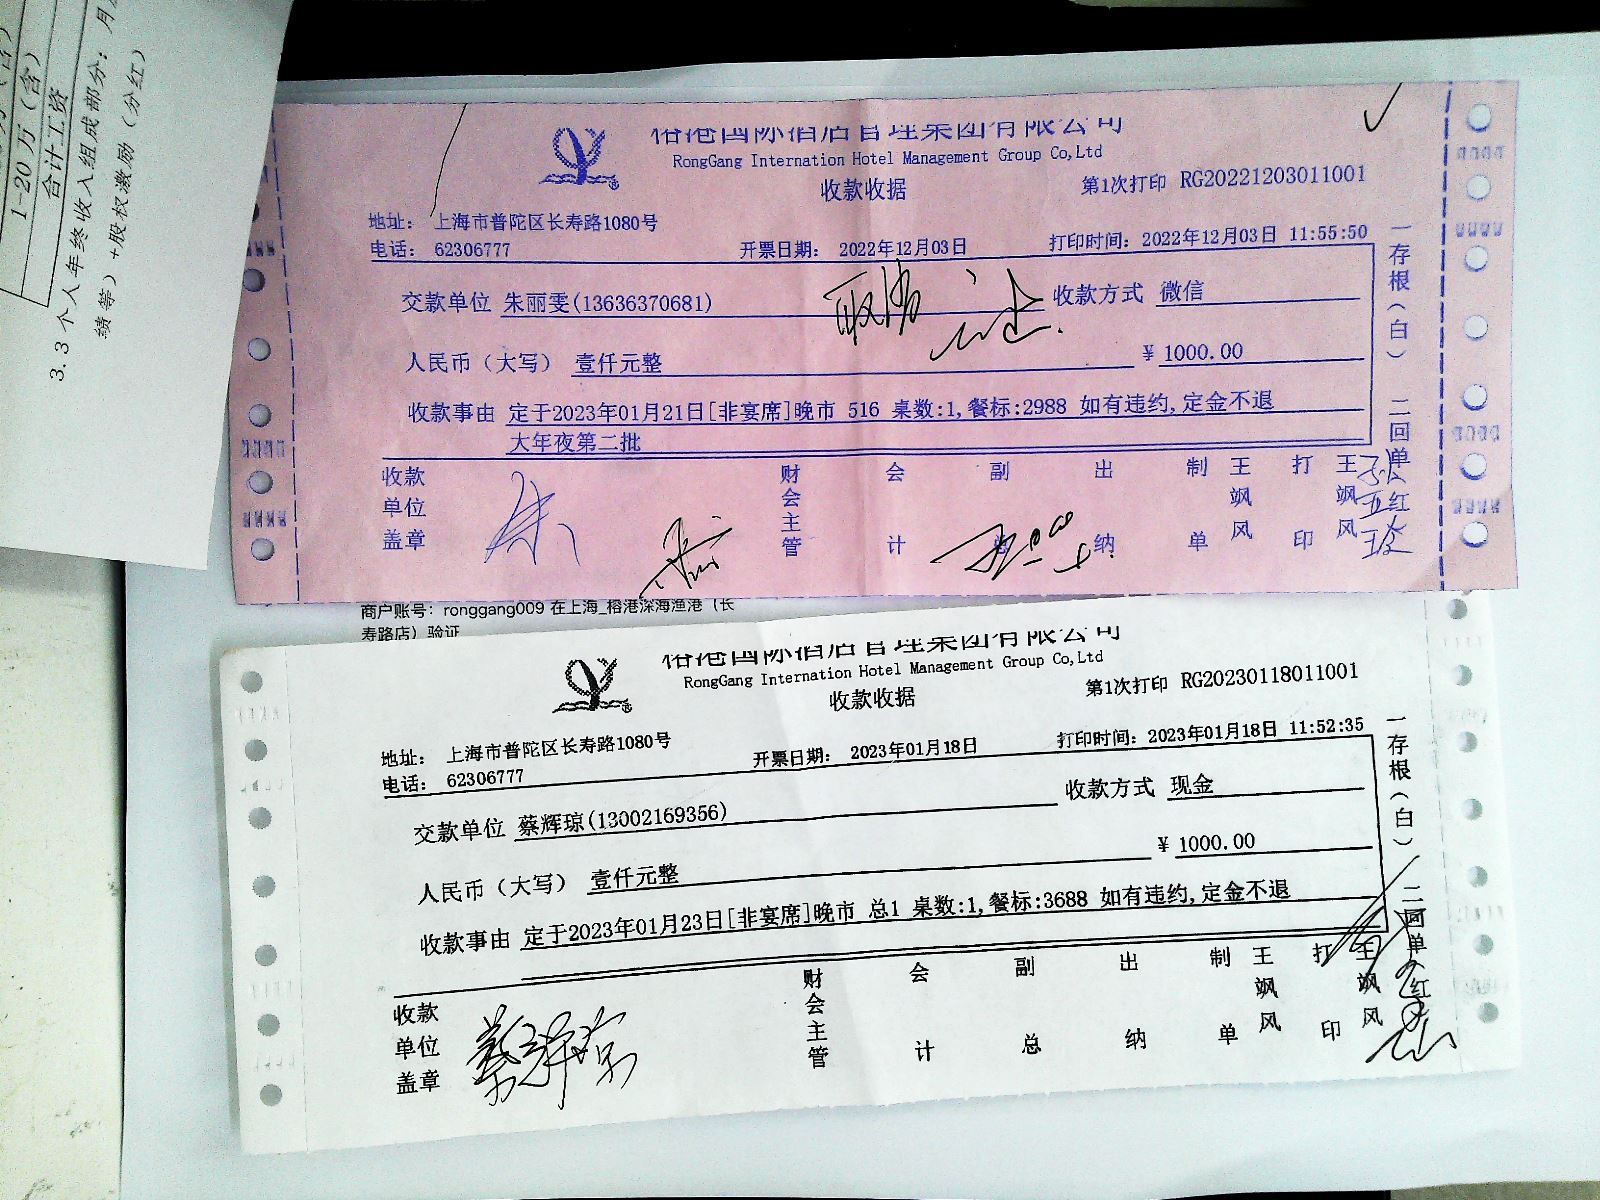 1-20万（含）
合计工资
3.3 个人年终收入组成部分：月
绩等）+股权激励（分红）
榕港国际酒店管理集团有限公司
RongGang Internation Hotel Management Group Co,Ltd
收款收据
第1次打印 RG20221203011001
地址： 上海市普陀区长寿路1080号
电话： 62306777
开票日期： 2022年12月03日
打印时间：2022年12月03日 11:55:50
交款单位 朱丽雯(13636370681)
收款方式 微信
人民币（大写） 壹仟元整
￥ 1000.00
收款事由 定于2023年01月21日[非宴席]晚市 516 桌数:1,餐标:2988 如有违约,定金不退
大年夜第二批
收款单位盖章
财会主管
会计
副总
出纳
制单
王飒风
打印
王飒风
一存根（白） 二回单 红
商户账号：ronggang009 在上海_榕港深海渔港（长
寿路店）验证
榕港国际酒店管理集团有限公司
RongGang Internation Hotel Management Group Co,Ltd
收款收据
第1次打印 RG20230118011001
地址： 上海市普陀区长寿路1080号
电话： 62306777
开票日期： 2023年01月18日
打印时间：2023年01月18日 11:52:35
交款单位 蔡辉琼(13002169356)
收款方式 现金
人民币（大写） 壹仟元整
￥ 1000.00
收款事由 定于2023年01月23日[非宴席]晚市 总1 桌数:1,餐标:3688 如有违约,定金不退
收款单位盖章
蔡辉琼
财会主管
会计
副总
出纳
制单
王飒风
打印
王飒风
一存根（白） 二回单 红